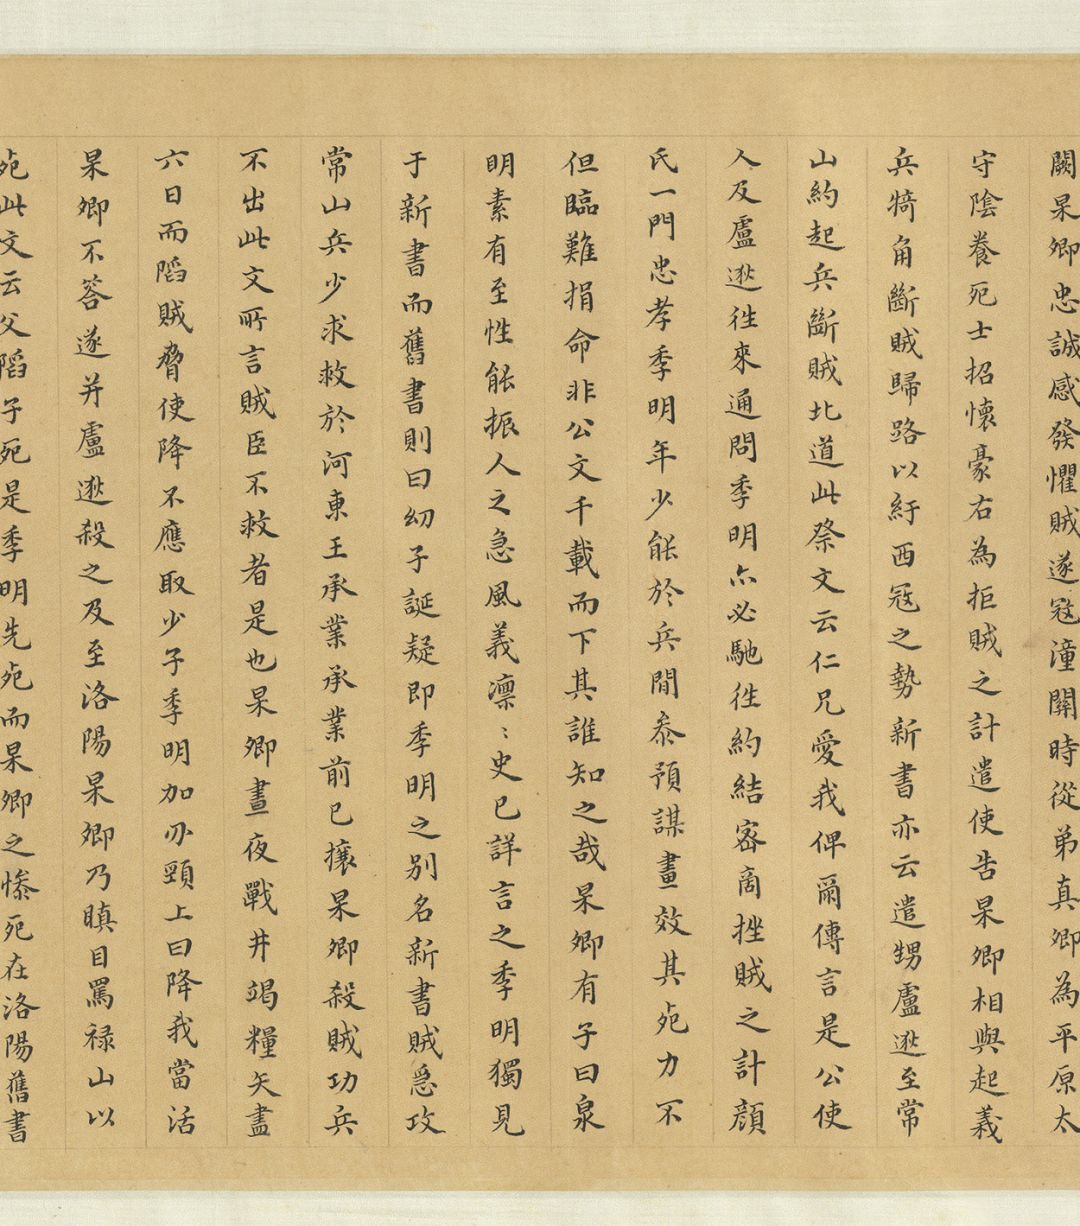 闕杲卿忠誠感發懼賊遂寇潼關時從弟真卿為平原太
守陰養死士招懷豪右為拒賊之計遣使告杲卿相與起義
兵犄角斷賊歸路以紓西寇之勢新書亦云遣甥盧逖至常
山約起兵斷賊北道此祭文云仁兄愛我俾爾傳言是公使
人及盧逖往來通問季明亦必馳往約結密商挫賊之計顏
氏一門忠孝季明年少能於兵間叅預謀畫效其死力不
但臨難捐命非公文千載而下其誰知之哉杲卿有子曰泉
明素有至性能振人之急風義凛〻史已詳言之季明獨見
于新書而舊書則曰幼子誕疑即季明之別名新書賊急攻
常山兵少求救於河東王承業承業前已攘杲卿殺賊功兵
不出此文所言賊臣不救者是也杲卿晝夜戰井竭糧矢盡
六日而陷賊脅使降不應取少子季明加刃頸上曰降我當活
杲卿不答遂并盧逖殺之及至洛陽杲卿乃瞋目罵禄山以
死此文云父陷子死是季明先死而杲卿之慘死在洛陽舊書